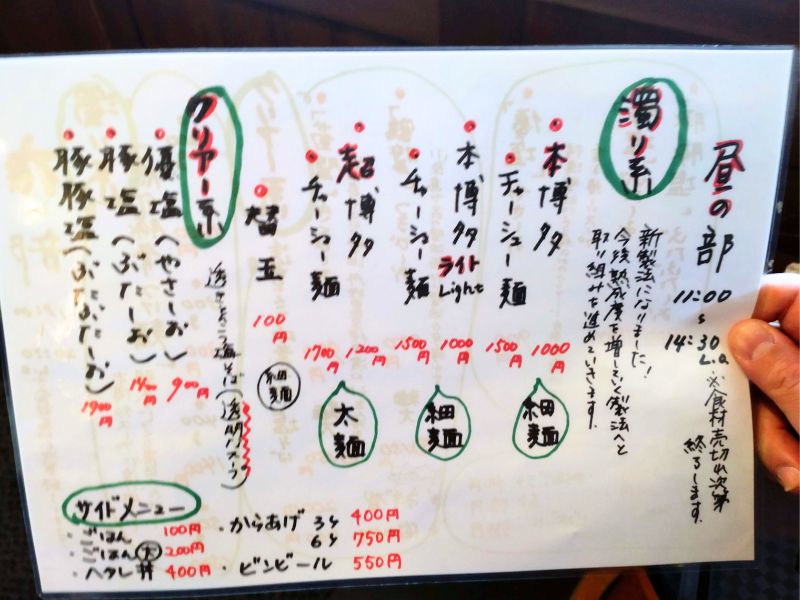 昼の部
11:00
〜
14:30
L.O
※食材売切れ次第
終了します。
濁り系
新製法になりました!
今後熟成度を増していく製法へと
取り組みを進めていきます。
・本博多 1000円
・チャーシュー麺 1500円
細麺
・本博多ライト Light 1000円
・チャーシュー麺 1500円
細麺
・超博多 1200円
・チャーシュー麺 1700円
太麺
・替玉 100円
細麺
クリアー系
透きとおった塩そば(透明スープ)
・優塩(やさしーお) 900円
・豚塩(ぶたしーお) 1400円
・豚豚塩(ぶたぶたしーお) 1900円
サイドメニュー
・ごはん 100円
・ごはん大 200円
・ヘタレ丼 400円
・からあげ 3ケ 400円
6ケ 750円
・ビンビール 550円